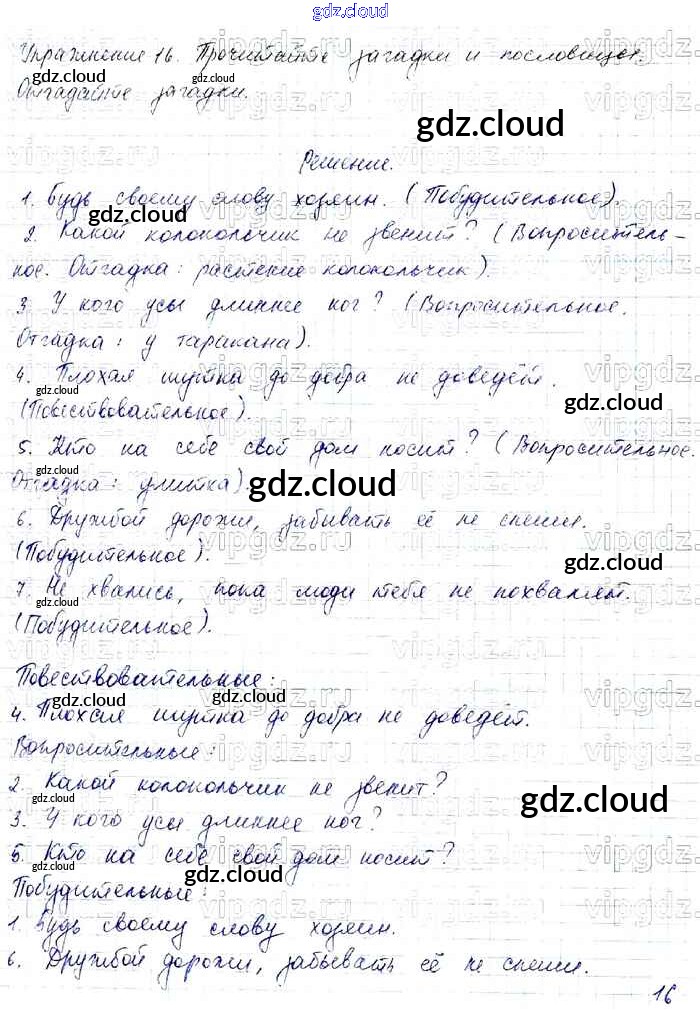 gdz.cloud
Упражнение 16. Прочитайте загадки и пословицы.
Отгадайте загадки.
Решение.
1. Будь своему слову хозяин. (Побудительное).
2. Какой колокольчик не звенит? (Вопроситель-
ное. Отгадка: растение колокольчик).
3. У кого усы длиннее ног? (Вопросительное.
Отгадка: у таракана).
4. Плохая шутка до добра не доведёт.
(Повествовательное).
5. Кто на себе свой дом носит? (Вопросительное.
Отгадка: улитка).
6. Дружбой дорожи, забывать её не спеши.
(Побудительное).
7. Не хвались, пока люди тебя не похвалят.
(Побудительное).
Повествовательные:
4. Плохая шутка до добра не доведёт.
Вопросительные:
2. Какой колокольчик не звенит?
3. У кого усы длиннее ног?
5. Кто на себе свой дом носит?
Побудительные:
1. Будь своему слову хозяин.
6. Дружбой дорожи, забывать её не спеши.
16